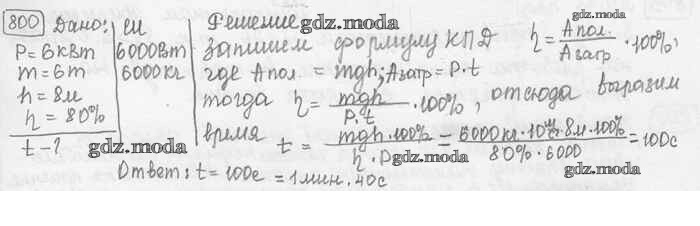 800 Дано: СИ Решение gdz.moda
P=6кВт 6000Вт запишем формулу КПД η = Aпол. / Aзатр · 100%, gdz.moda
m=6т 6000кг где Aпол. = mgh; Aзатр = P·t
h=8м тогда η = mgh / P·t · 100%, отсюда выразим
η = 80% время t = mgh·100% / η·P = 6000кг·10·8м·100% / 80%·6000 = 100с
t-? gdz.moda gdz.moda gdz.moda
Ответ: t = 100с = 1мин. 40с